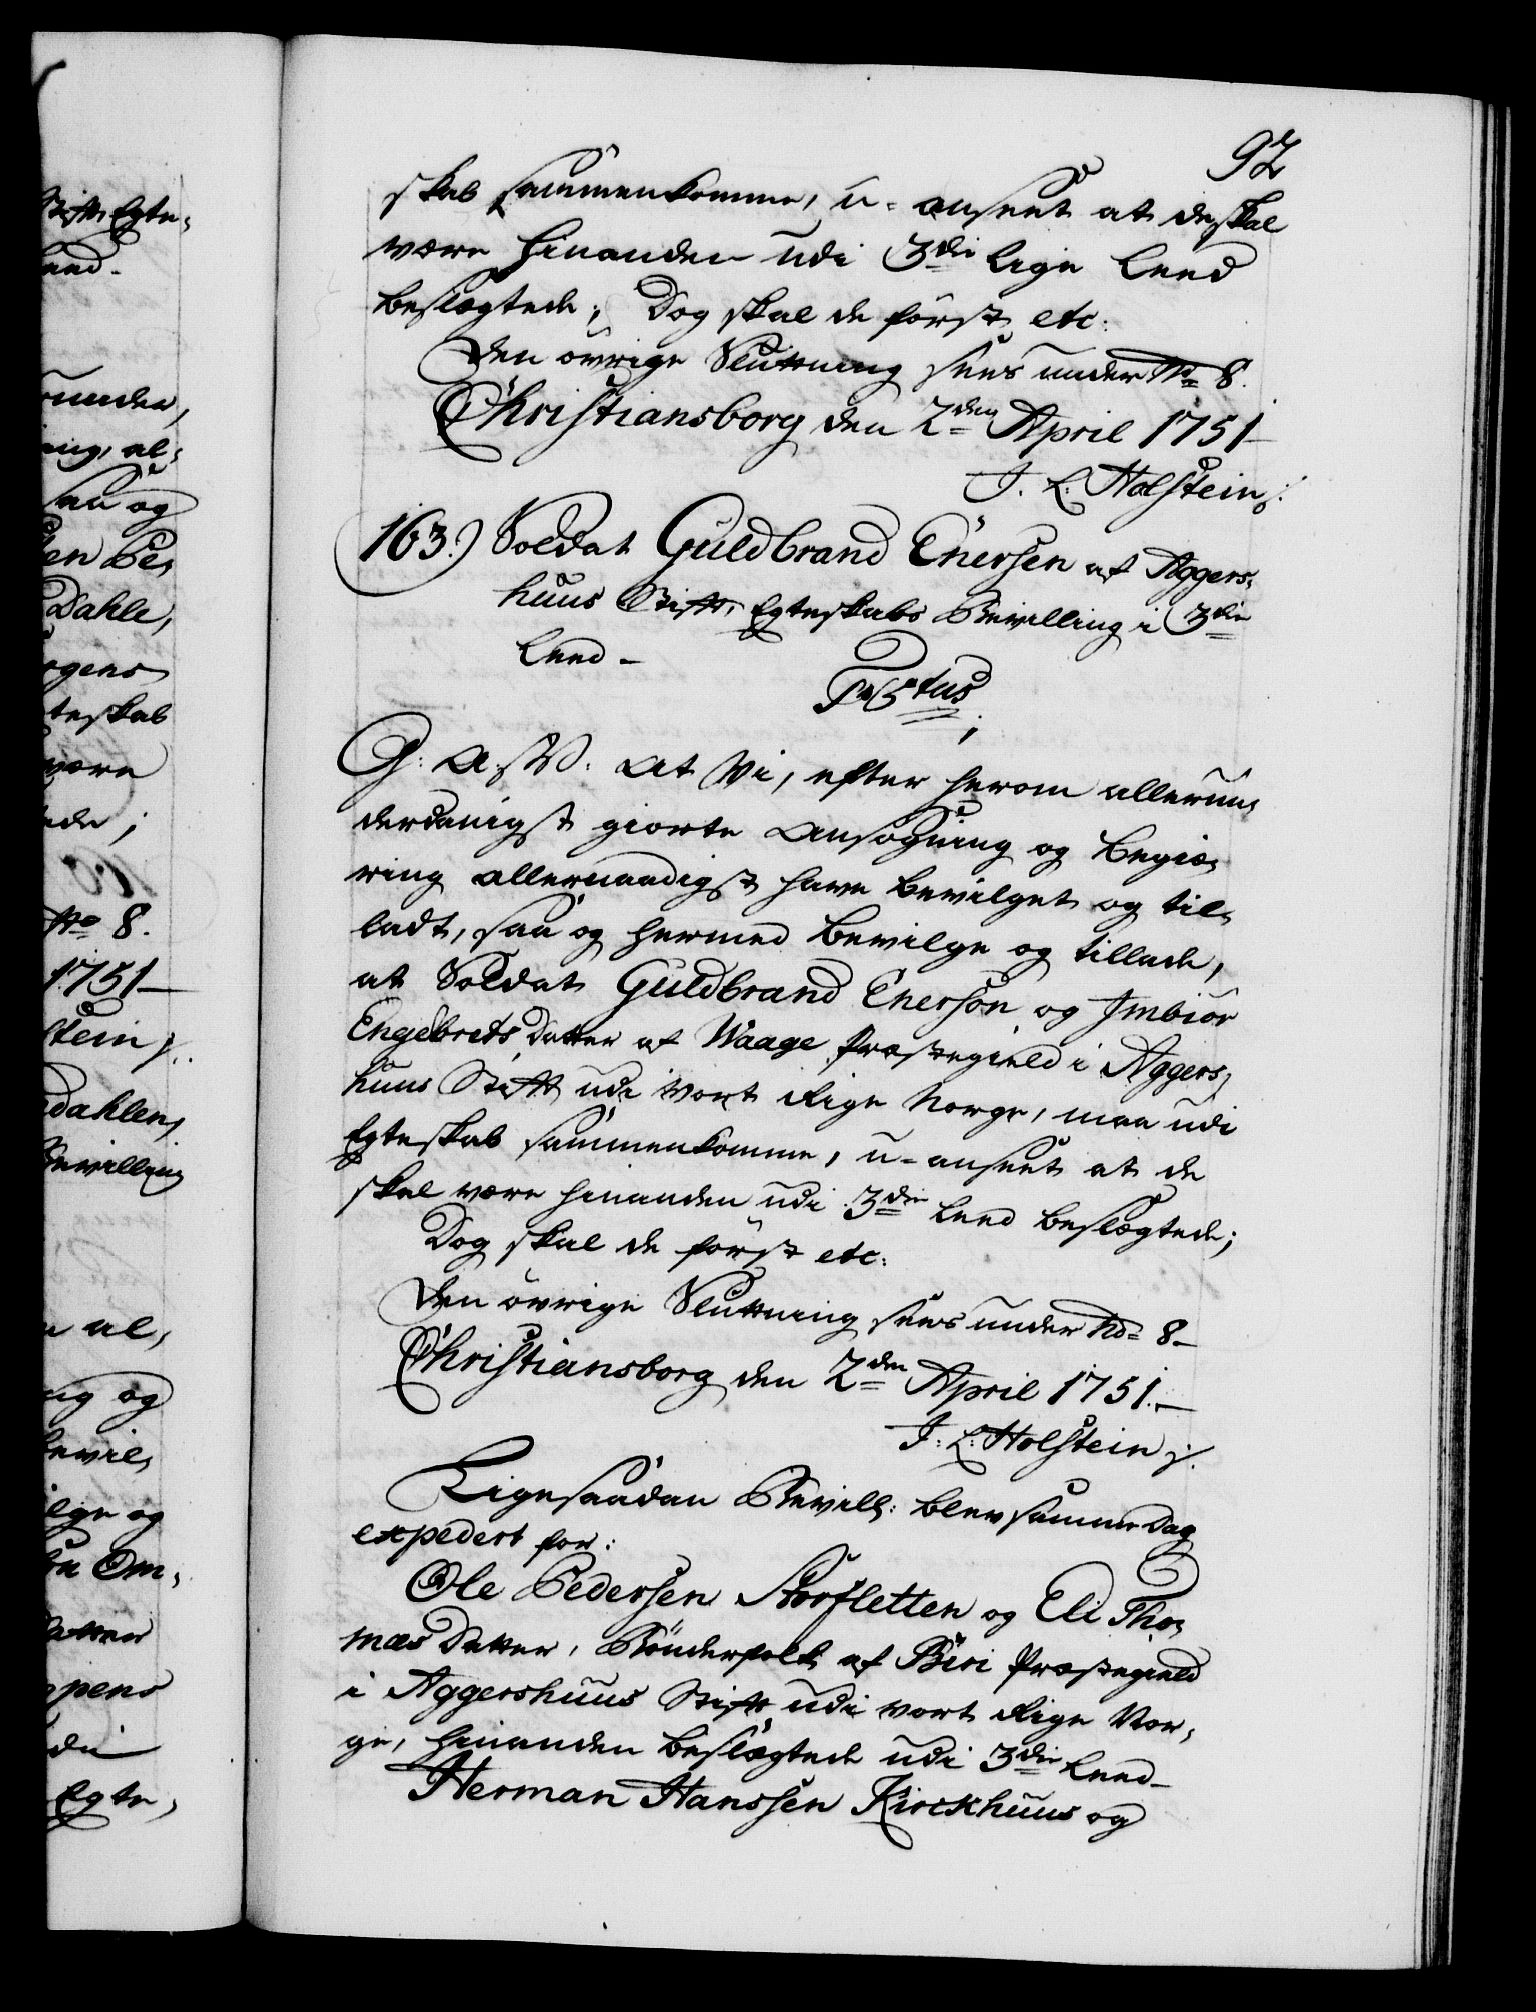 92
skab sammenkomme, u-anseet at de skal
være hinanden udi 3die lige Leed
beslægtede; Dog skal de först etc:
Den övrige Slutning sees under No 8.
Christiansborg den 2den April 1751
J. L. Holstein /.
163.) Soldat Guldbrand Enersen af Aggers,
huus Stift, Egteskabs Bevilling i 3die
Leed -
Festus
G: A: W: At Vi, efter herom allerun,
derdanigst giorte Ansøgning og Begiæ,
ring allernaadigst have bevilget og til,
ladt, saa og hermed bevilge og tillade,
at Soldat Guldbrand Enerson og Imbiör
Engebrets Datter af Waage Præstegield i Aggers,
huus Stift udi vort Rige Norge, maa udi
Egteskab sammenkomme, u-anseet at de
skal være hinanden udi 3die Leed beslægtede;
Dog skal de först etc:
Den övrige Slutning sees under No 8-
Christiansborg den 2den April 1751.-
J: L: Holstein /.
Ligesaadan Bevill: blev samme Dag
expedert for:
Ole Pedersen Storsletten og Eli Tho,
mæs Datter, Bönderfolk af Biri Præstegield
i Aggershuus Stift udi vort Rige Nor,
ge, hinanden beslægtede udi 3die Leed-
Herman Hanssen Kirckhuus og